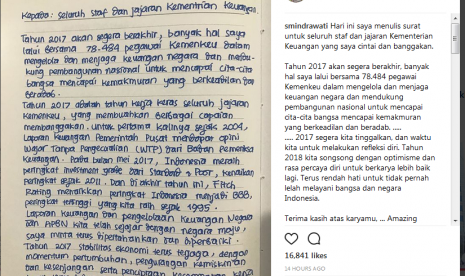 Kepada: seluruh staf dan jajaran Kementrian Keuangan.
Tahun 2017 akan segera berakhir, banyak hal saya
lalui bersama 78.484 pegawai Kemenkeu dalam
mengelola dan menjaga keuangan negara dan mendu-
kung pembangunan nasional untuk mencapai cita-cita
bangsa mencapai kemakmuran yang berkeadilan dan
beradab.
Tahun 2017 adalah tahun kerja keras seluruh jajaran
Kemenkeu, yang membuahkan berbagai capaian
membanggakan. untuk pertama kalinya sejak 2004,
Laporan Keuangan Pemerintah Pusat mendapat opini
Wajar Tanpa Pengecualian (WTP) dari Badan Pemeriksa
Keuangan. Pada bulan mei 2017, Indonesia meraih
peringkat investment grade dari Standard & Poor, kenaikan
peringkat sejak 2011. Dan di akhir tahun ini, Fitch
Rating menaikkan peringkat Indonesia menjadi BBB,
peringkat tertinggi yang kita raih sejak 1995.
Laporan Keuangan dan pengelolaan Keuangan Negara
dan APBN kita telah sejajar dengan negara maju,
saya minta terus dipertahankan dan diperbaiki.
Tahun 2017 stabilitas ekonomi terus terjaga, dengan
momentum pertumbuhan, pengurangan kemiskinan
dan kesenjangan serta penciptaan kesempatan kerja
smindrawati Hari ini saya menulis surat
untuk seluruh staf dan jajaran Kementerian
Keuangan yang saya cintai dan banggakan.
Tahun 2017 akan segera berakhir, banyak
hal saya lalui bersama 78.484 pegawai
Kemenkeu dalam mengelola dan menjaga
keuangan negara dan mendukung
pembangunan nasional untuk mencapai
cita-cita bangsa mencapai kemakmuran
yang berkeadilan dan beradab. ....
.... 2017 segera kita tinggalkan, dan waktu
kita untuk melakukan refleksi diri. Tahun
2018 kita songsong dengan optimisme dan
rasa percaya diri untuk berkarya lebih baik
lagi. Terus rendah hati untuk tidak pernah
lelah melayani bangsa dan negara
Indonesia.
Terima kasih atas karyamu, ... Amazing
16,841 likes
14 HOURS AGO